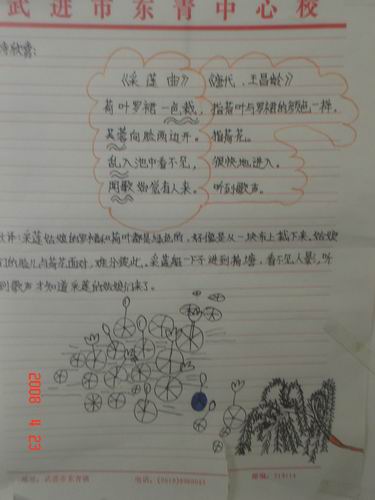 武进市东青中心校
诗欣赏:
《采莲曲》 《唐代、王昌龄》
荷叶罗裙一色裁, 指荷叶与罗裙的颜色一样。
芙蓉向脸两边开。 指荷花。
乱入池中看不见, 很快地进入。
闻歌始觉有人来。 听到歌声。
译:采莲姑娘的罗裙和荷叶都是绿色的,好像是从一块布上裁下来。姑娘
们的脸儿与荷花面对,难分彼此。采莲船一下子进到荷塘,看不见人影,听
到歌声才知道采莲的姑娘们来了。
2008 4 23
地址:武进市东青镇 电话: 邮编: